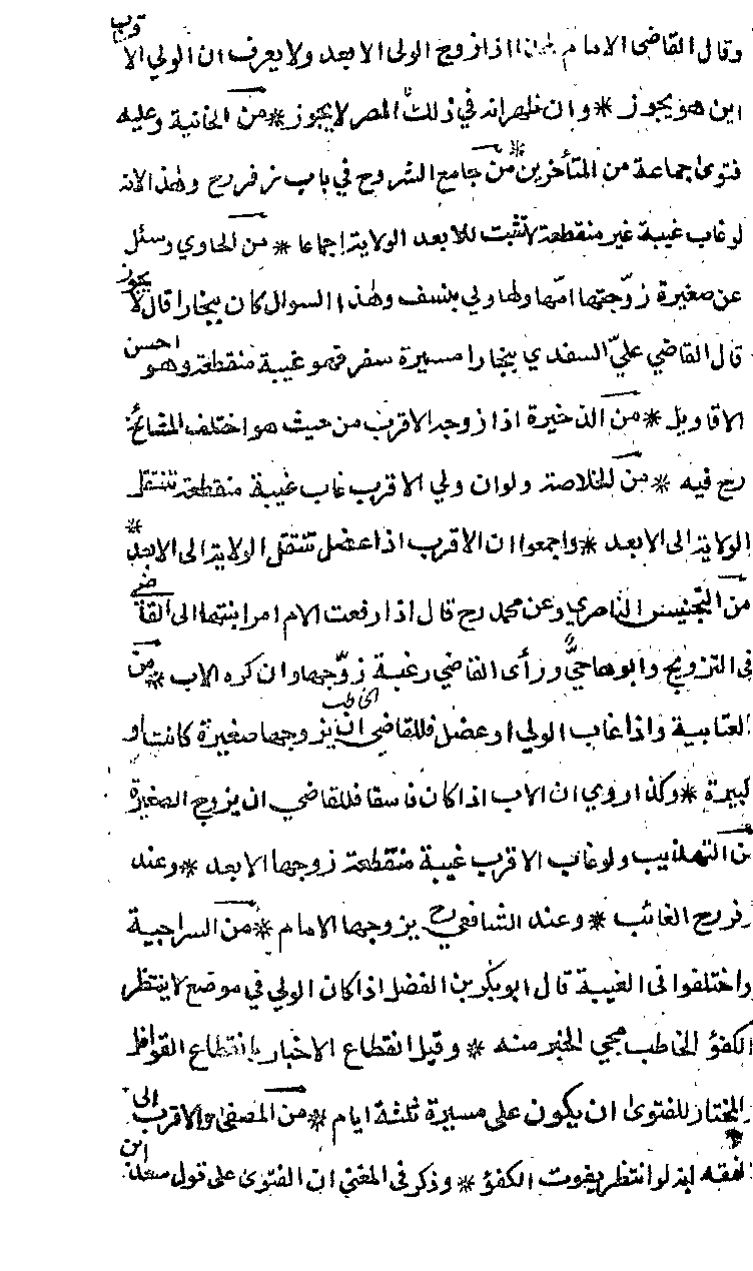 وقال القاضي الامام اذا زوج الولي الابعد ولا يعرف ان الولي الاقرب
اين هو يجوز * وان ظهرانه في ذلك المصر لا يجوز * من الخانية وعليه
فتوى جماعة من المتأخرين * من جامع الشروح في باب زفر رح ولهذا لانه
لو غاب غيبة غير منقطعة لا تثبت للابعد الولاية اجماعا * من الحاوي وسئل
عن صغيرة زوّجتها امّها ولها ولي بنسف وهذا السوال كان ببخارا قال لا يجوز
قال القاضي عليّ السغدي ببخارا مسيرة سفر فهو غيبة منقطعة وهو احسن
الاقاويل * من الذخيرة اذا زوجه الاقرب من حيث هو اختلف المشائخ
رح فيه * من الخلاصة ولو ان ولي الاقرب غاب غيبة منقطعة تنتقل
الولاية الى الابعد * واجمعوا ان الاقرب اذا عضل تنتقل الولاية الى الابعد *
من التجنيس الناصري وعن محمد رح قال اذا رفعت الام امر ابنتها الى القاضي
في التزويج وابوها حيّ ورأى القاضي رغبة زوّجها وان كره الاب * من
العتابية واذا غاب الولي او عضل فللقاضي ان يزوجها صغيرة كانت او
كبيرة * وكذا روي ان الاب اذا كان فاسقا فللقاضي ان يزوج الصغيرة
من التهذيب ولو غاب الاقرب غيبة منقطعة زوجها الابعد * وعند
زفر رح الغائب * وعند الشافعي رح يزوجها الامام * من السراجية
واختلفوا في الغيبة قال ابو بكر بن الفضل اذا كان الولي في موضع لا ينتظر
الكفؤ الخاطب مجي الخبر منه * وقيل انقطاع الاخبار بانقطاع القوافل
والمختار للفتوى ان يكون على مسيرة ثلثة ايام * من المصفى والاقرب الى
الفقه انه لو انتظر يفوت الكفؤ * وذكر في المغني ان الفتوى على قول سعد ابن